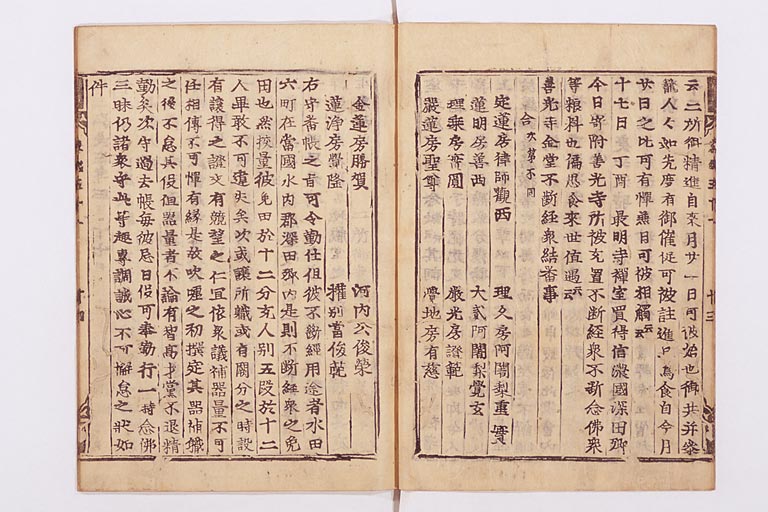 云二所御精進自來月廿一日可被始也御共并參
籠人々如先度有御催促可被註進日爲食自今月
廿日之比可有憚無日可被相觸云云
十七日 丁酉 最明寺禪室買得信濃國深田鄉
今日寄附善光寺所被充置不斷經衆不斷念佛衆
等粮料也偏思食來世値遇云云
善光寺金堂不斷經衆結番事
合 次第不同
定蓮房律師觀西 理久房阿闍梨重實
蓮明房善西 大貳阿闍梨覺玄
理乘房齊圓 嚴光房證範
嚴蓮房聖尊 覺地房有慈
金蓮房勝賀 河内公俊榮
蓮淨房榮隆 權別當俊範
右守番帳之旨可令勤仕但彼不斷經用途者水田
六町在當國水内郡深田鄉内是則不斷經衆之免
田也然撿量彼免田於十二分充人別五段於十二
人畢敢不可違失矣次或讓所職或有闕分之時設
有讓得之證文有競望之仁宜依衆議補器量不可
任相傳不可憚有緣是故吹噓之初撰定其器補職
之後不怠其役但器量者不論有智高才棠不退精
勤矣次守過去帳每彼忌日侶可奉勤行一時念佛
三昧仍諸衆守此等趣專調誠心不可懈怠之狀如
件